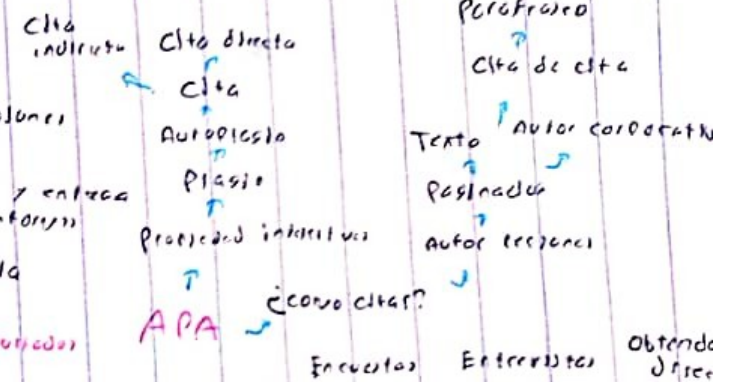 Cita
indirecta
Cita directa
Cita
Autoplagio
Plagio
Propiedad intelectual
APA
¿como citar?
Parafraseo
Cita de cita
Texto
Autor corporativ
Paginador
Autor
y entrega
Encuestas
Entrevistas
Obtenido